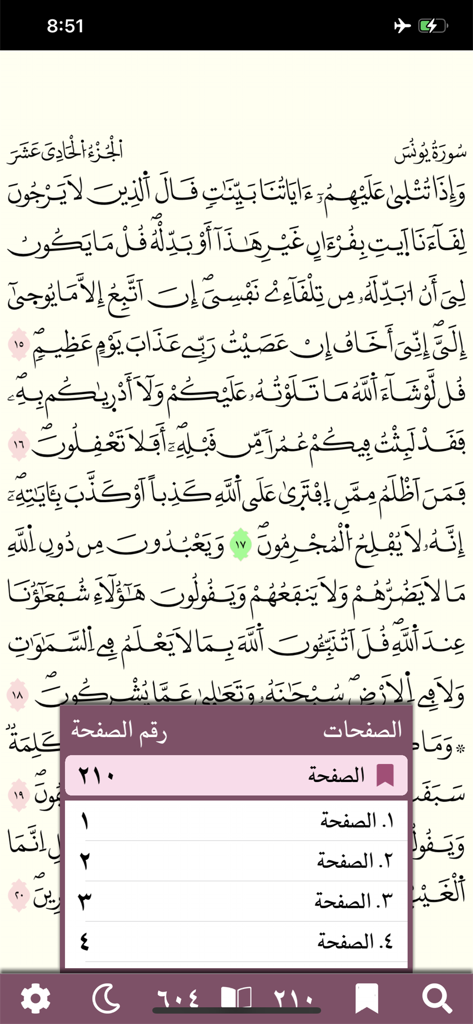 8:51
سُورَةُ يُونُسَ
اَلْجُزْءُ الْحَادِي عَشَرَ
وَإِذَا تُتْلٜي عَلَيْهِمُۥٓ ءَايَاتُنَا بَيِّنَٰتٖ قَالَ اَلذِينَ لَا يَرْجُونَ
لِقَآءَنَا اَيتِ بِقُرْءَانٍ غَيْرِ هَٰذَآ أَوْ بَدِّلْهُۖ قُلْ مَا يَكُونُ
لِيَ أَنُ ا۟بَدِّلَهُۥ مِن تِلْقَآءِےْ نَفْسِيَۖ إِنَ اَتَّبِعُ إِلَّا مَا يُوحٜيٰٓ
إِلَيَّۖ إِنِّيَ أَخَافُ إِنْ عَصَيْتُ رَبِّے عَذَابَ يَوْمٍ عَظِيمٖۖ ١٥
قُل لَّوْ شَآءَ اَللَّهُ مَا تَلَوْتُهُۥ عَلَيْكُمْ وَلَآ أَدْرٜيٰكُم بِهِۦ
فَقَدْ لَبِثْتُ فِيكُمْ عُمُراٗ مِّن قَبْلِهِۦٓۖ أَفَلَا تَعْقِلُونَۖ ١٦
فَمَنَ اَظْلَمُ مِمَّنِ اِفْتَرٜيٰ عَلَي اَللَّهِ كَذِباً اَوْ كَذَّبَ بِـَٔايَٰتِهِۦٓ
إِنَّهُۥ لَا يُفْلِحُ اُلْمُجْرِمُونَۖ ١٧ وَيَعْبُدُونَ مِن دُونِ اِللَّهِ
مَا لَا يَضُرُّهُمْ وَلَا يَنفَعُهُمْ وَيَقُولُونَ هَٰٓؤُلَآءِ شُفَعَٰٓؤُنَا
عِندَ اَللَّهِۖ قُلَ اَتُنَبِّـُٔونَ اَللَّهَ بِمَا لَا يَعْلَمُ فِے اِلسَّمَٰوَٰتِ
وَلَا فِے اِلَارْضِۖ سُبْحَٰنَهُۥ وَتَعَٰلٜيٰ عَمَّا يُشْرِكُونَۖ ١٨
۞ وَمَا كَلِمَةٞ
سَبَقَتْ ١٩
اِنَّمَا
اَلْغَيْبُ ٢٠
الصفحات رقم الصفحة
الصفحة ٢١٠
١. الصفحة ١
٢. الصفحة ٢
٣. الصفحة ٣
٤. الصفحة ٤
٢١٠ ٦٠٤